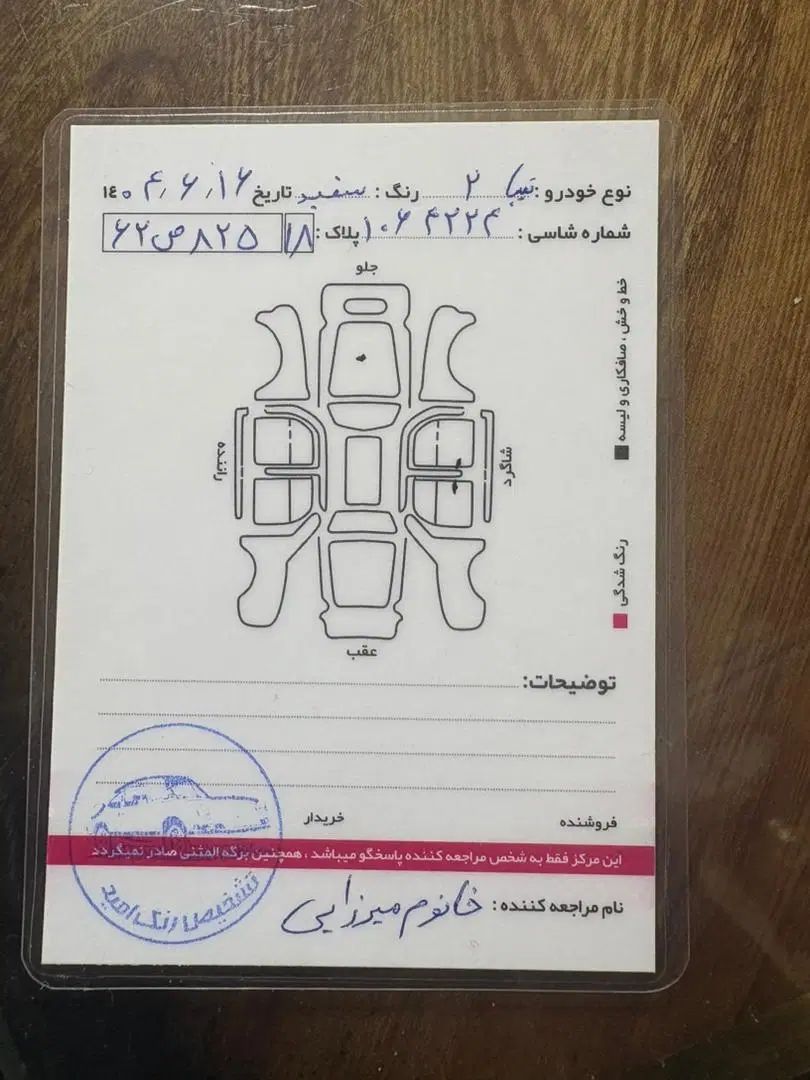 نوع خودرو : تیبا ۲ رنگ : سفید تاریخ ۱۴۰۴/۶/۱۶
شماره شاسی : ۱۰۶۴۲۲۴ پلاک : ۱۸ ۸۲۵ص۶۲
جلو
خط و خش ، صافکاری و لیسه
راننده
شاگرد
رنگ شدگی
عقب
توضیحات:
فروشنده خریدار
این مرکز فقط به شخص مراجعه کننده پاسخگو میباشد ، همچنین برگه المثنی صادر نمیگردد
نام مراجعه کننده : خانوم میرزایی
تشخیص رنگ امید